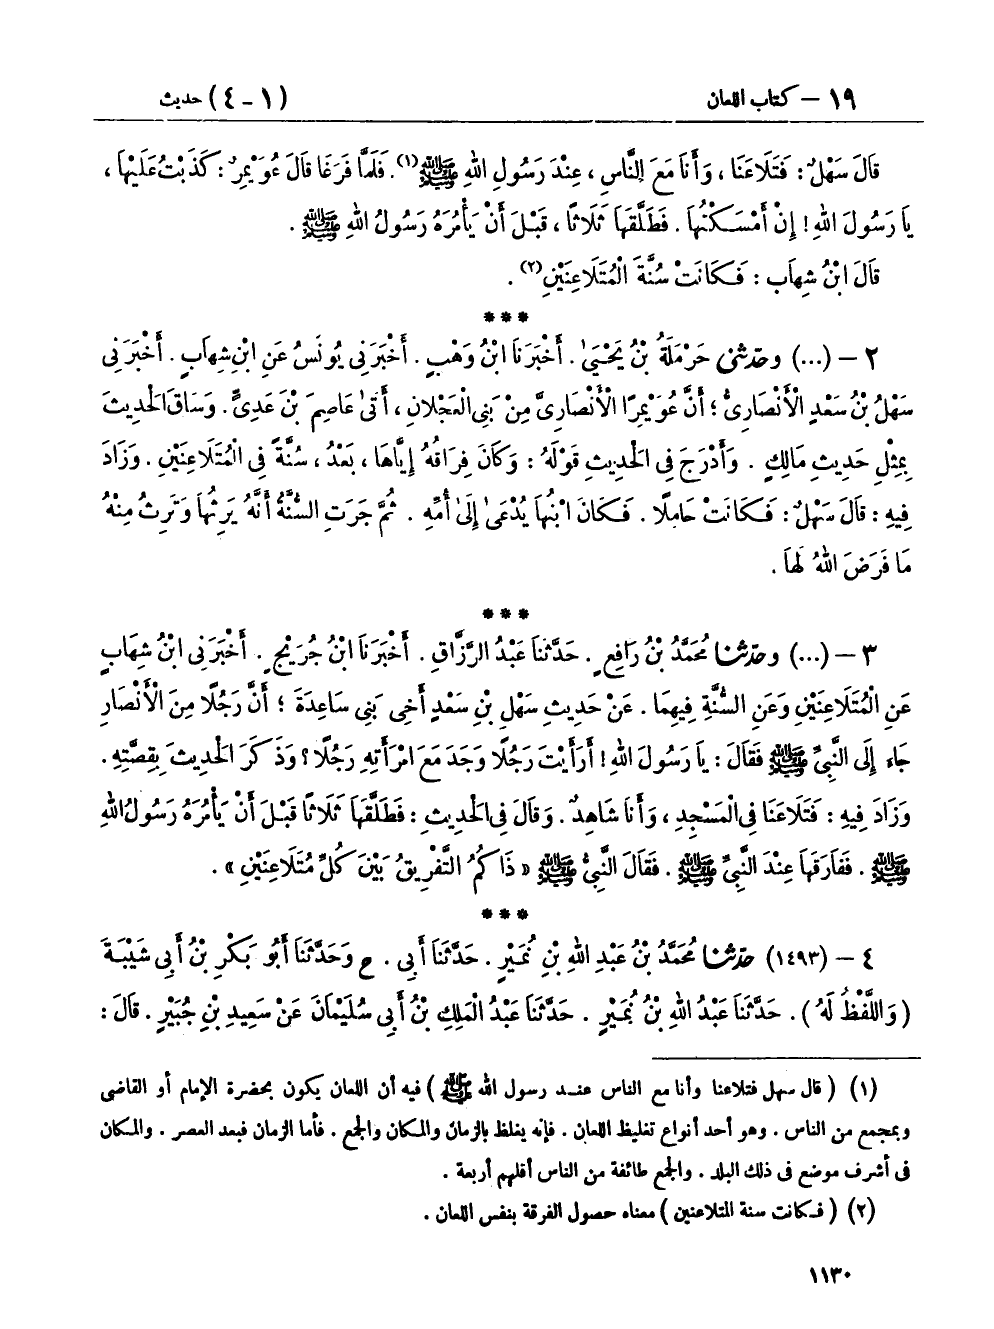 ١٩ – كتاب اللعان (١ – ٤) حديث
قَالَ سَهْلٌ : فَتَلَاعَنَا ، وَأَنَا مَعَ النَّاسِ ، عِنْدَ رَسُولِ اللهِ ﷺ(١). فَلَمَّا فَرَغَا قَالَ عُوَيْمِرٌ : كَذَبْتُ عَلَيْهَا ،
يَا رَسُولَ اللهِ ! إِنْ أَمْسَكْتُهَا . فَطَلَّقَهَا ثَلَاثًا ، قَبْلَ أَنْ يَأْمُرَهُ رَسُولُ اللهِ ﷺ .
قَالَ ابْنُ شِهَابٍ : فَكَانَتْ سُنَّةَ الْمُتَلَاعِنَيْنِ(٢) .
***
٢ – (...) وحدثني حَرْمَلَةُ بْنُ يَحْيَىٰ . أَخْبَرَنَا ابْنُ وَهْبٍ . أَخْبَرَنِي يُونُسُ عَنِ ابْنِ شِهَابٍ . أَخْبَرَنِي
سَهْلُ بْنُ سَعْدٍ الْأَنْصَارِيُّ ؛ أَنَّ عُوَيْمِرًا الْأَنْصَارِيَّ مِنْ بَنِي الْعَجْلَانِ ، أَتَىٰ عَاصِمَ بْنَ عَدِيٍّ . وَسَاقَ الْحَدِيثَ
بِمِثْلِ حَدِيثِ مَالِكٍ . وَأَدْرَجَ فِي الْحَدِيثِ قَوْلَهُ : وَكَانَ فِرَاقُهُ إِيَّاهَا ، بَعْدُ ، سُنَّةً فِي الْمُتَلَاعِنَيْنِ . وَزَادَ
فِيهِ : قَالَ سَهْلٌ : فَكَانَتْ حَامِلًا . فَكَانَ ابْنُهَا يُدْعَىٰ إِلَىٰ أُمِّهِ . ثُمَّ جَرَتِ السُّنَّةُ أَنَّهُ يَرِثُهَا وَتَرِثُ مِنْهُ
مَا فَرَضَ اللهُ لَهَا .
***
٣ – (...) وحدثنا مُحَمَّدُ بْنُ رَافِعٍ . حَدَّثَنَا عَبْدُ الرَّزَّاقِ . أَخْبَرَنَا ابْنُ جُرَيْجٍ . أَخْبَرَنِي ابْنُ شِهَابٍ
عَنِ الْمُتَلَاعِنَيْنِ وَعَنِ السُّنَّةِ فِيهِمَا . عَنْ حَدِيثِ سَهْلِ بْنِ سَعْدٍ أَخِي بَنِي سَاعِدَةَ ؛ أَنَّ رَجُلًا مِنَ الْأَنْصَارِ
جَاءَ إِلَى النَّبِيِّ ﷺ فَقَالَ : يَا رَسُولَ اللهِ ! أَرَأَيْتَ رَجُلًا وَجَدَ مَعَ امْرَأَتِهِ رَجُلًا ؟ وَذَكَرَ الْحَدِيثَ بِقِصَّتِهِ .
وَزَادَ فِيهِ : فَتَلَاعَنَا فِي الْمَسْجِدِ ، وَأَنَا شَاهِدٌ . وَقَالَ فِي الْحَدِيثِ : فَطَلَّقَهَا ثَلَاثًا قَبْلَ أَنْ يَأْمُرَهُ رَسُولُ اللهِ
ﷺ . فَفَارَقَهَا عِنْدَ النَّبِيِّ ﷺ . فَقَالَ النَّبِيُّ ﷺ « ذَاكُمُ التَّفْرِيقُ بَيْنَ كُلِّ مُتَلَاعِنَيْنِ » .
***
٤ – (١٤٩٣) حدثنا مُحَمَّدُ بْنُ عَبْدِ اللهِ بْنِ نُمَيْرٍ . حَدَّثَنَا أَبِي . ح وَحَدَّثَنَا أَبُو بَكْرِ بْنُ أَبِي شَيْبَةَ
( وَاللَّفْظُ لَهُ ) . حَدَّثَنَا عَبْدُ اللهِ بْنُ نُمَيْرٍ . حَدَّثَنَا عَبْدُ الْمَلِكِ بْنُ أَبِي سُلَيْمَانَ عَنْ سَعِيدِ بْنِ جُبَيْرٍ . قَالَ :
(١) ( قال سهل فتلاعنا وأنا مع الناس عند رسول الله ﷺ ) فيه أن اللعان يكون بحضرة الإمام أو القاضى
وبمجمع من الناس . وهو أحد أنواع تغليظ اللعان . فإنه يغلظ بالزمان والمكان والجمع . فأما الزمان فبعد العصر . والمكان
فى أشرف موضع فى ذلك البلد . والجمع طائفة من الناس أقلهم أربعة .
(٢) ( فكانت سنة المتلاعنين ) معناه حصول الفرقة بنفس اللعان .
١١٣٠